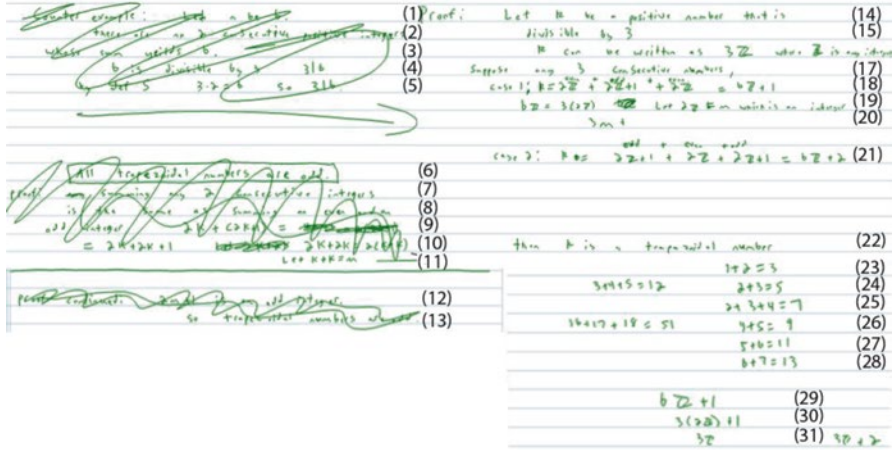 Counter example: Let n be 6. (1)
there are no 2 consecutive positive integers (2)
whose sum yeilds 6. (3)
6 is divisible by 3 3|6 (4)
by def 5 3·2=6 so 3|6. (5)
All trapezoidal numbers are odd. (6)
proof: summing any 2 consecutive integers (7)
is the same as summing an even and an (8)
odd integer 2k + (2k+1) = (9)
= 2k+2k+1 2k+2k 2(k+k) (10)
Let k+k=m (11)
proof continued: 2m+1 is an odd integer. (12)
so trapezoidal numbers are odd. (13)
Proof: Let k be a positive number that is (14)
divisible by 3 (15)
k can be written as 3ℤ where ℤ is any integer
Suppose any 3 consecutive numbers, (17)
case 1; k=2ℤ + 2ℤ+1 + 2ℤ = 6ℤ+1 (18)
6ℤ = 3(2ℤ) Let 2ℤ = m which is an integer (19)
3m + (20)
odd + even + odd
case 2; k = 2ℤ+1 + 2ℤ + 2ℤ+1 = 6ℤ+2 (21)
then k is a trapezoidal number (22)
1+2=3 (23)
3+4+5=12 2+3=5 (24)
2+3+4=7 (25)
16+17+18=51 4+5=9 (26)
5+6=11 (27)
6+7=13 (28)
6ℤ+1 (29)
3(2ℤ)+1 (30)
3ℤ (31) 3ℤ+2